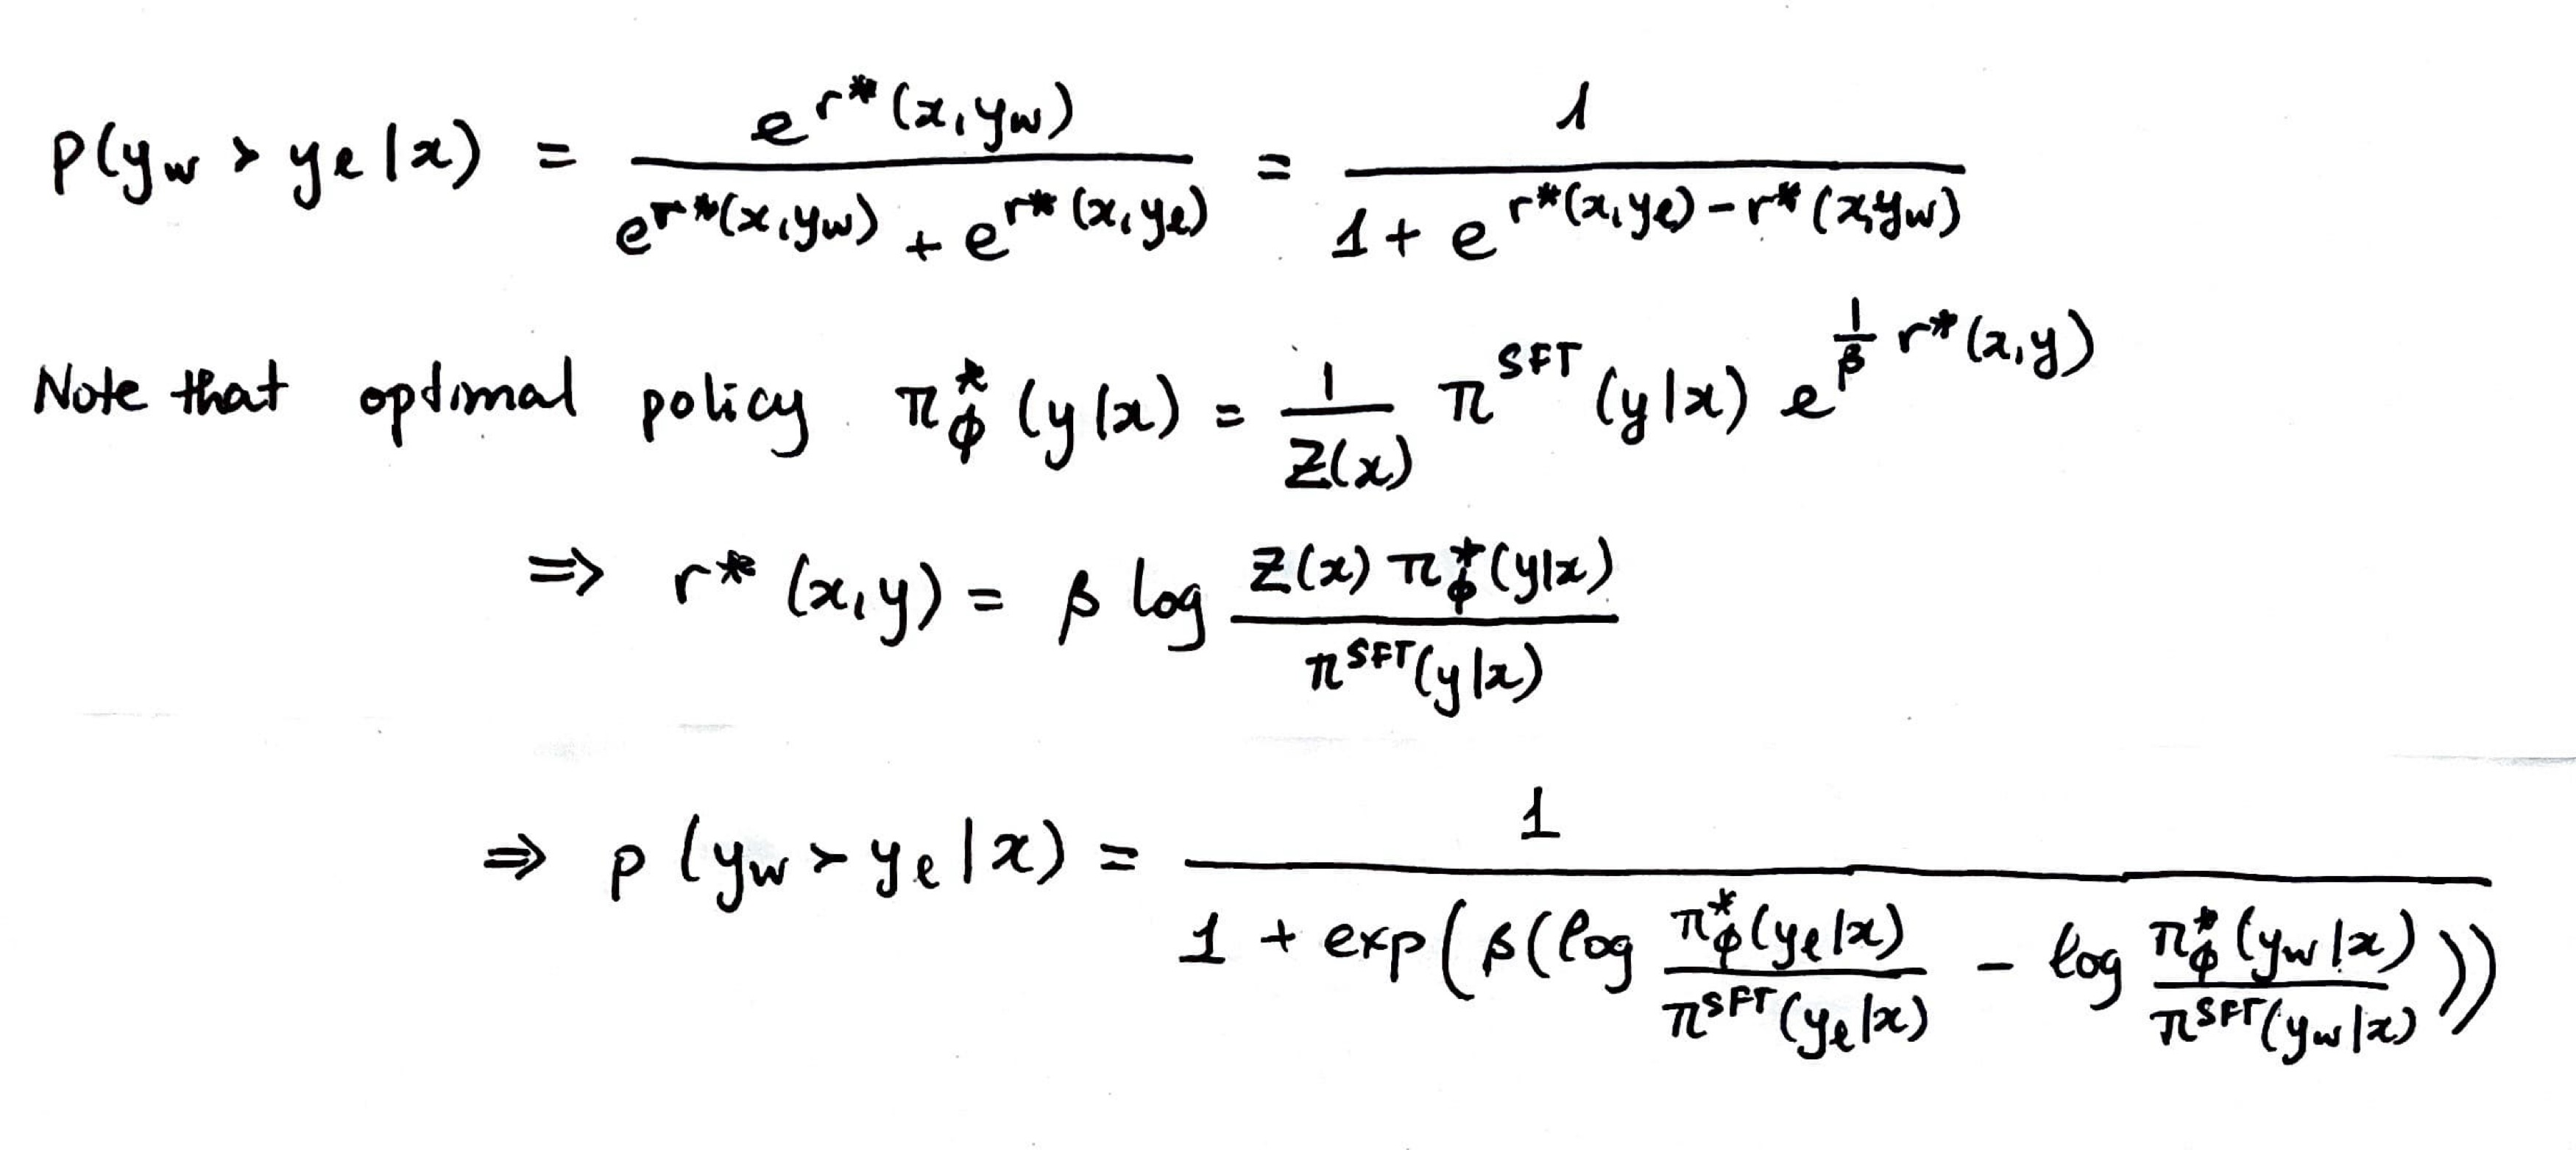 p(y_w > y_l | x) = e^{r*(x, y_w)} / (e^{r*(x, y_w)} + e^{r*(x, y_l)}) = 1 / (1 + e^{r*(x, y_l) - r*(x, y_w)})
Note that optimal policy π*_ϕ (y|x) = 1/Z(x) π^{SFT} (y|x) e^{1/β r*(x, y)}
⇒ r* (x, y) = β log (Z(x) π*_ϕ(y|x) / π^{SFT}(y|x))
⇒ p (y_w > y_l | x) = 1 / (1 + exp(β(log π*_ϕ(y_l|x) / π^{SFT}(y_l|x) - log π*_ϕ(y_w|x) / π^{SFT}(y_w|x))))